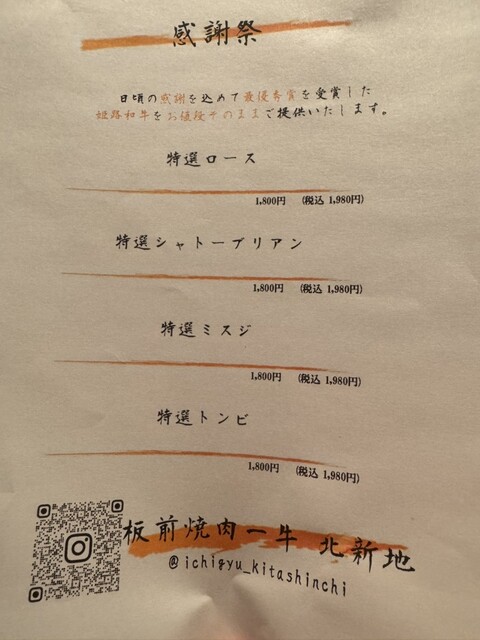 感謝祭
日頃の感謝を込めて最優秀賞を受賞した
姫路和牛をお値段そのままご提供いたします。
特選ロース
1,800円 (税込 1,980円)
特選シャトーブリアン
1,800円 (税込 1,980円)
特選ミスジ
1,800円 (税込 1,980円)
特選トンビ
1,800円 (税込 1,980円)
板前焼肉一牛 北新地
@ichigyu_kitashinchi